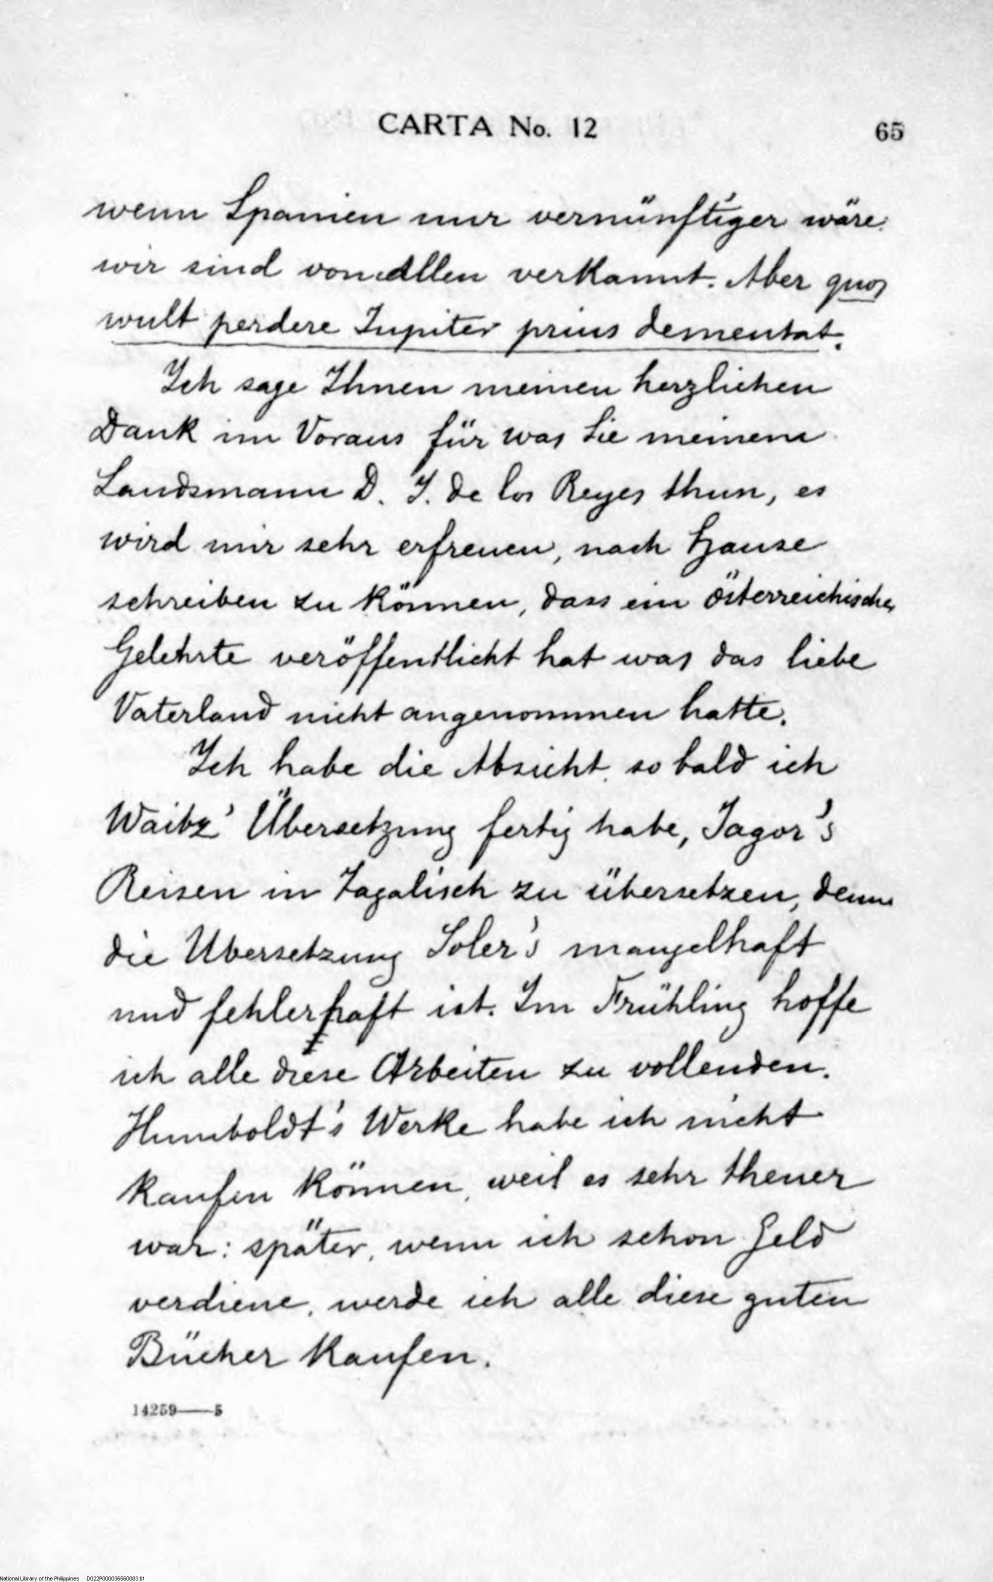 CARTA No. 12
65
wenn Spanien nur vernünftiger wäre.
wir sind von allen verkannt. Aber quos
vult perdere Iupiter prius dementat.
Ich sage Ihnen meinen herzlichen
Dank im Voraus für was Sie meinem
Landsmann D. I. de los Reyes thun, es
wird mir sehr erfreuen, nach Hause
schreiben zu können, dass ein österreichischer
Gelehrte veröffentlicht hat was das liebe
Vaterland nicht angenommen hatte.
Ich habe die Absicht, so bald ich
Waitz' Übersetzung fertig habe, Jagor's
Reisen in Tagalisch zu übersetzen, denn
die Ubersetzung Soler's mangelhaft
und fehlerhaft ist. Im Frühling hoffe
ich alle diese Arbeiten zu vollenden.
Humboldt's Werke habe ich nicht
kaufen können, weil es sehr theuer
war: später, wenn ich schon Geld
verdiene, werde ich alle diese guten
Bücher kaufen.
14259——5
National Library of the Philippines